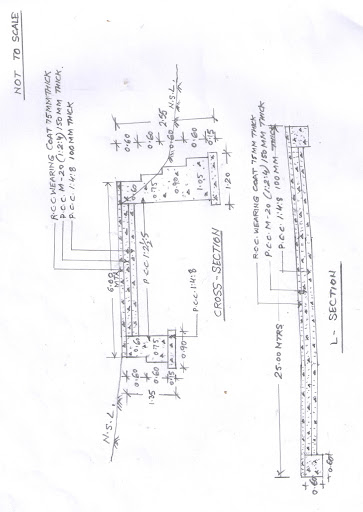 NOT TO SCALE
R.C.C WEARING COAT 75MM THICK
P.C.C. M-20 (1:2:4) 150 MM THICK.
P.C.C. 1:4:8 100 MM THICK
6.00
MTR
N.S.L.
N.S.L.
2.55
0.60
0.60
0.60
0.15
0.60
0.75
0.90
1.05
1.20
P.C.C 1:2½:5
P.C.C. 1:4:8
0.60
0.75
0.90
0.60
0.60
0.15
1.35
CROSS-SECTION
R.C.C. WEARING COAT 75 MM THICK
P.C.C. M-20 (1:2:4) 150 MM THICK
P.C.C. 1:4:8 100 MM THICK
25.00 MTRS
0.60
0.60
L - SECTION